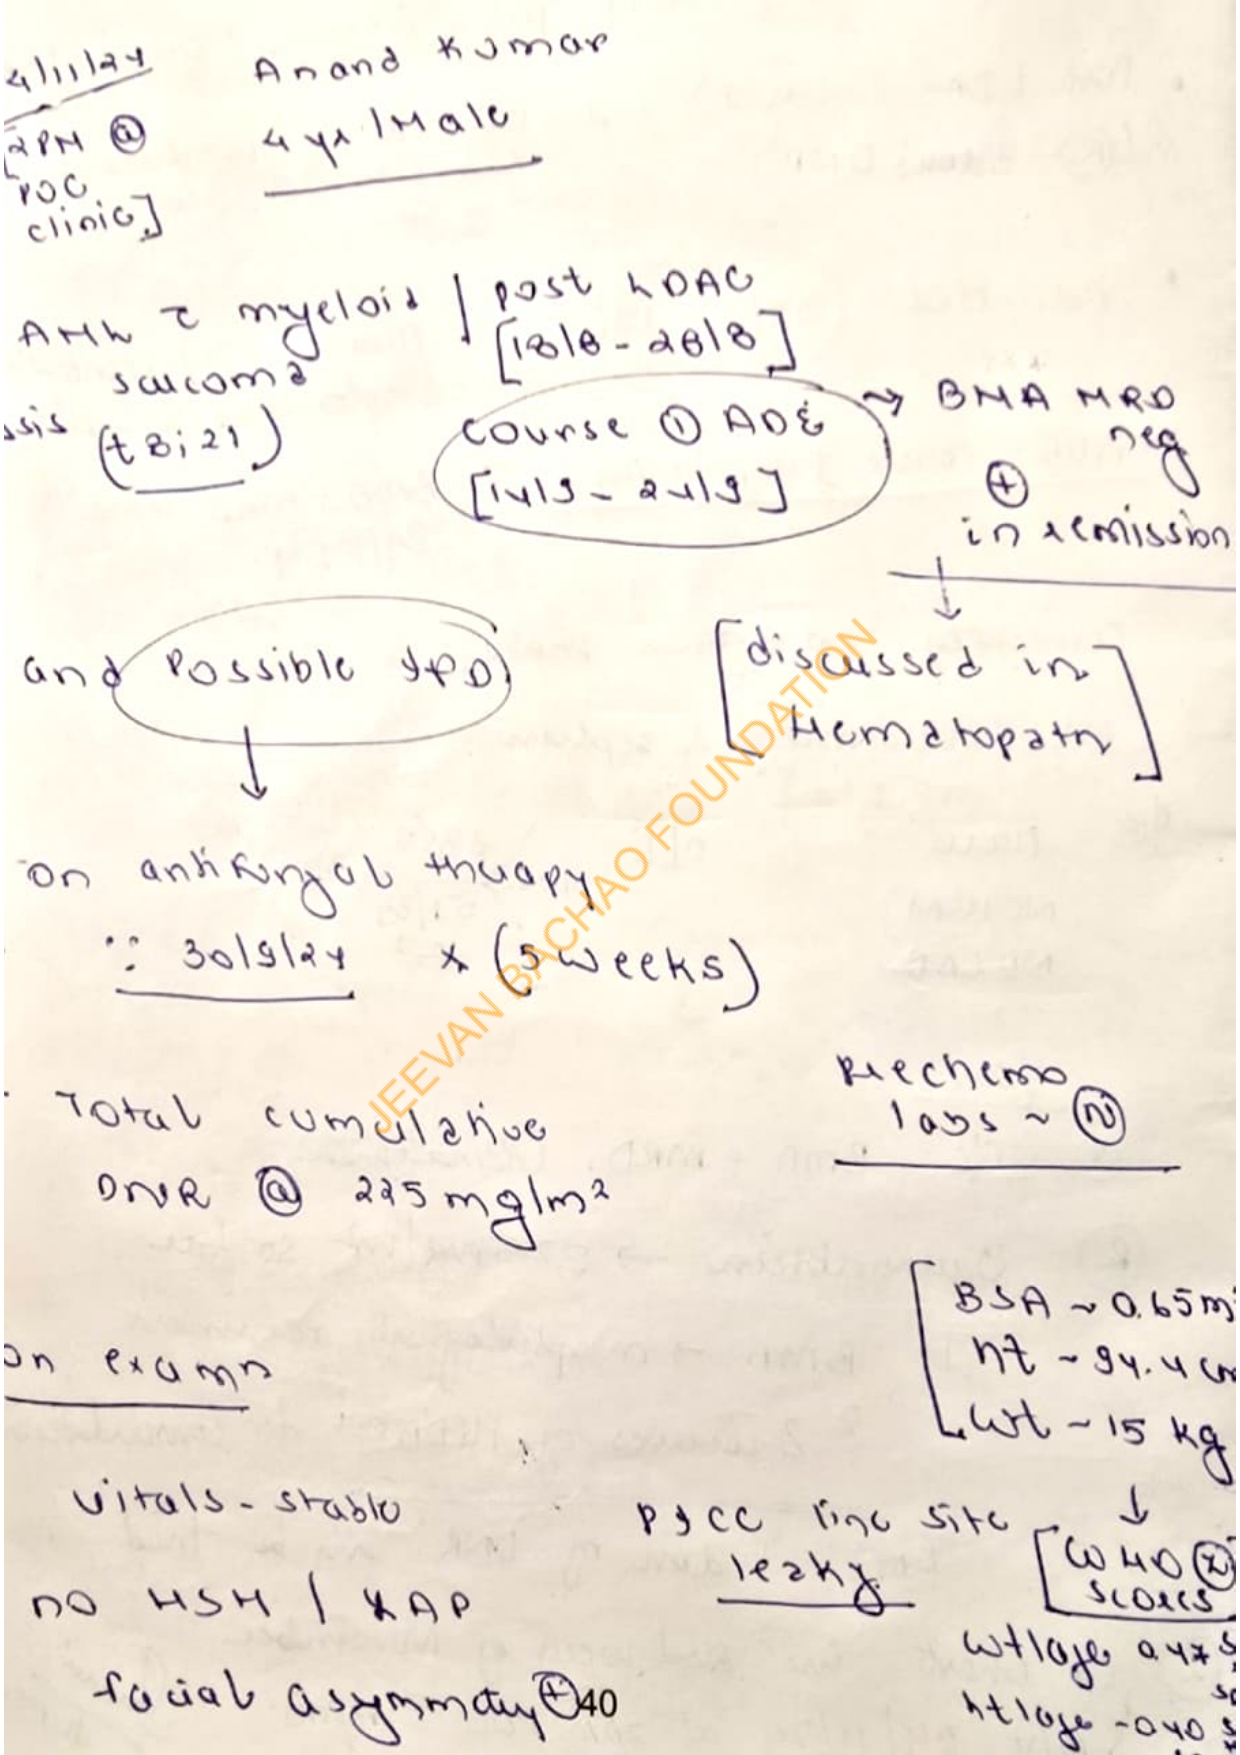 4/11/24 Anand Kumar
2PM @ 4 yr / Male
POC
clinic]
AML c myeloid / post LDAC
sarcoma [18/8 - 28/8]
(t 8; 21)
course ① ADE → BMA MRD
neg
[14/9 - 24/9] ⊕
in remission
↓
and Possible IFD [discussed in
Hematopath]
↓
on antifungal therapy
∵ 30/9/24 x (5 weeks)
Prechemo
labs ~ Ⓝ
Total cumulative
DNR @ 225 mg/m²
BSA ~ 0.65 m
on examn ht ~ 94.4 cm
wt ~ 15 kg
vitals - stable PICC line site ↓
leaky [WHO Ⓩ
scores
no HSM / LAP
wt/age 0.47 S
facial asymmetry ⊕ 40
ht/age -0.40 S
JEEVAN BACHAO FOUNDATION